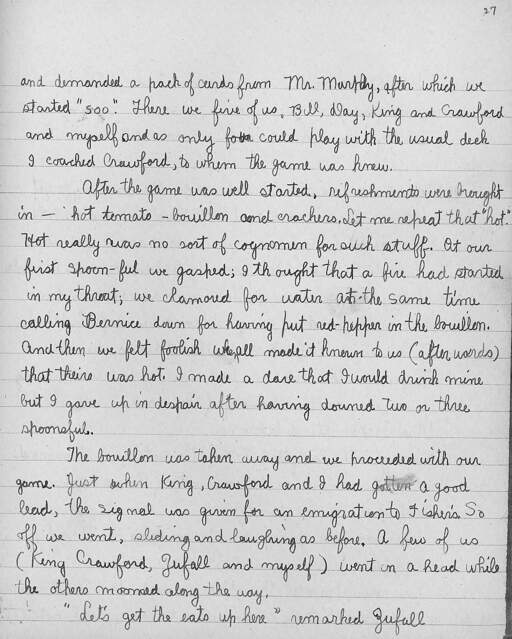 27
and demanded a pack of cards from Mr. Murphy, after which we
started "500". There we five of us, Bill, Day, King and Crawford
and myself and as only four could play with the usual deck
I coached Crawford, to whom the game was knew.
After the game was well started, refreshments were brought
in — hot tomato - bouillon and crackers. Let me repeat that "hot".
Hot really was no sort of cognomen for such stuff. At our
first spoon-ful we gasped; I thought that a fire had started
in my throat; we clamored for water at the same time
calling Bernice down for having put red-pepper in the bouillon.
And then we felt foolish all made it known to us (afterwards)
that theirs was hot. I made a dare that I would drink mine
but I gave up in despair after having downed two or three
spoonsful.
The bouillon was taken away and we proceeded with our
game. Just when King, Crawford and I had gotten a good
lead, the signal was given for an emigration to Fisher's. So
off we went, sliding and laughing as before. A few of us
(King Crawford, Zufall and myself) went on a head while
the others mooned along the way.
"Let's get the eats up here" remarked Zufall